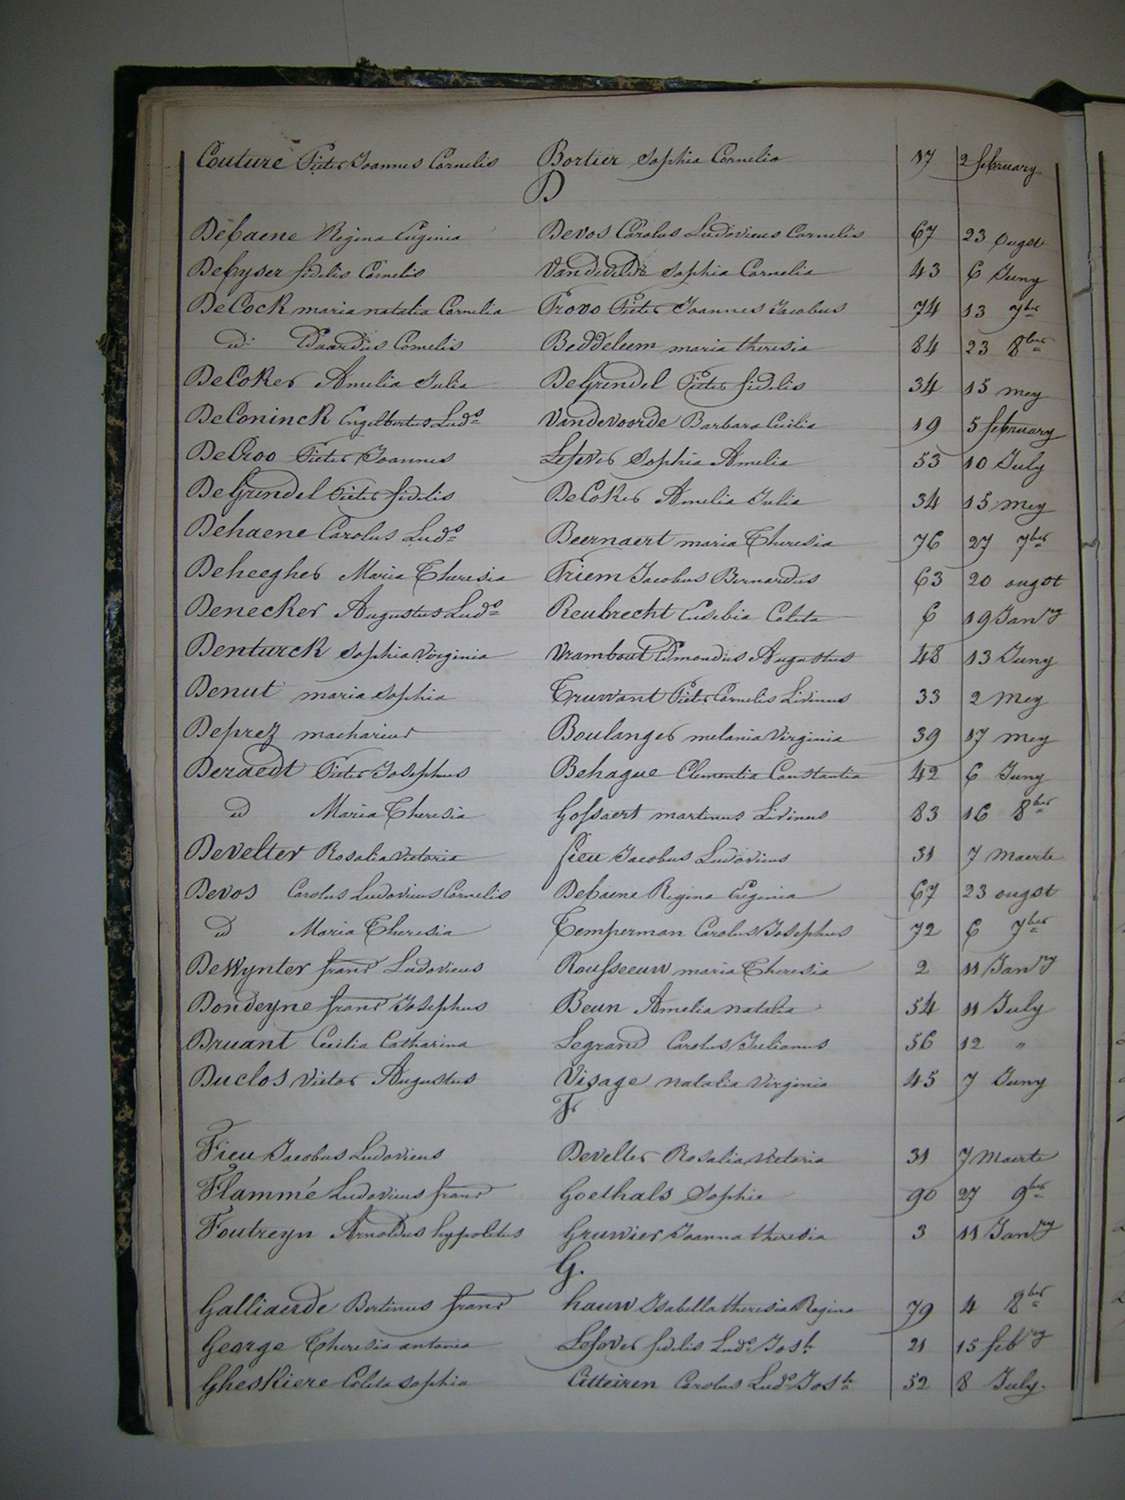 Couture Pieter Joannes Cornelis Bortier Sophia Cornelia 17 2 february
D
Debaene Regina Eugenia Devos Carolus Ludovicus Cornelis 67 23 ougst
Debyser fidelis Cornelis Vandevelde Sophia Cornelia 43 6 Juny
DeCock maria natalia Cornelia Provo Pieter Joannes Jacobus 74 13 7ber
id Eduardus Cornelis Beddeleem maria theresia 84 23 8ber
DeCoker Amelia Julia DeGrendel Pieter fidelis 34 15 mey
DeConinck Engelbertus Ludos Vandevoorde Barbara Cicilia 19 5 february
DeCroo Pieter Joannes Lefever Sophia Amelia 53 10 July
DeGrendel Pieter fidelis DeCoker Amelia Julia 34 15 mey
Dehaene Carolus Ludos Beernaert maria Theresia 76 27 7ber
Deheegher Maria Theresia Triem Jacobus Bernardus 63 20 ougst
Denecker Augustus Ludos Reubrecht Eusebia Coleta 6 19 Janry
Denturck Sophia Virginia Vrambout Edmondus Augustus 48 13 Juny
Denut maria Sophia Truwant Pieter Cornelis Livinus 33 2 mey
Deprez macharius Boulanger melania Virginia 39 17 mey
Deraedt Pieter Josephus Behague Clementia Constantia 42 6 Juny
id Maria Theresia Gossaert martinus Livinus 83 16 8ber
Develter Rosalia Victoria fieu Jacobus Ludovicus 31 7 Maerte
Devos Carolus Ludovicus Cornelis Debaene Regina Eugenia 67 23 ougst
id Maria Theresia Temperman Carolus Josephus 72 6 7ber
DeWynter frans Ludovicus Rousseeuw maria Theresia 2 11 Janry
Dondeyne frans Josephus Beun Amelia natalia 54 11 July
Druant Cecilia Catharina Legrand Carolus Julianus 56 12 "
Duclos Victor Augustus Visage natalia Virginia 45 7 Juny
F
Fieu Jacobus Ludovicus Develter Rosalia Victoria 31 7 Maerte
Flammé Ludovicus frans Goethals Sophia 90 27 9ber
Foutreyn Arnoldus hypolitus Gruwier Joanna theresia 3 11 Janry
G.
Galliaerde Bertinus frans hauw Isabella theresia Regina 79 4 8ber
George Theresia antonia Lefever fidelis Ludos Josh 21 15 febry
Gheskiere Coleta Sophia Carolus Ludos Josh 52 8 July.